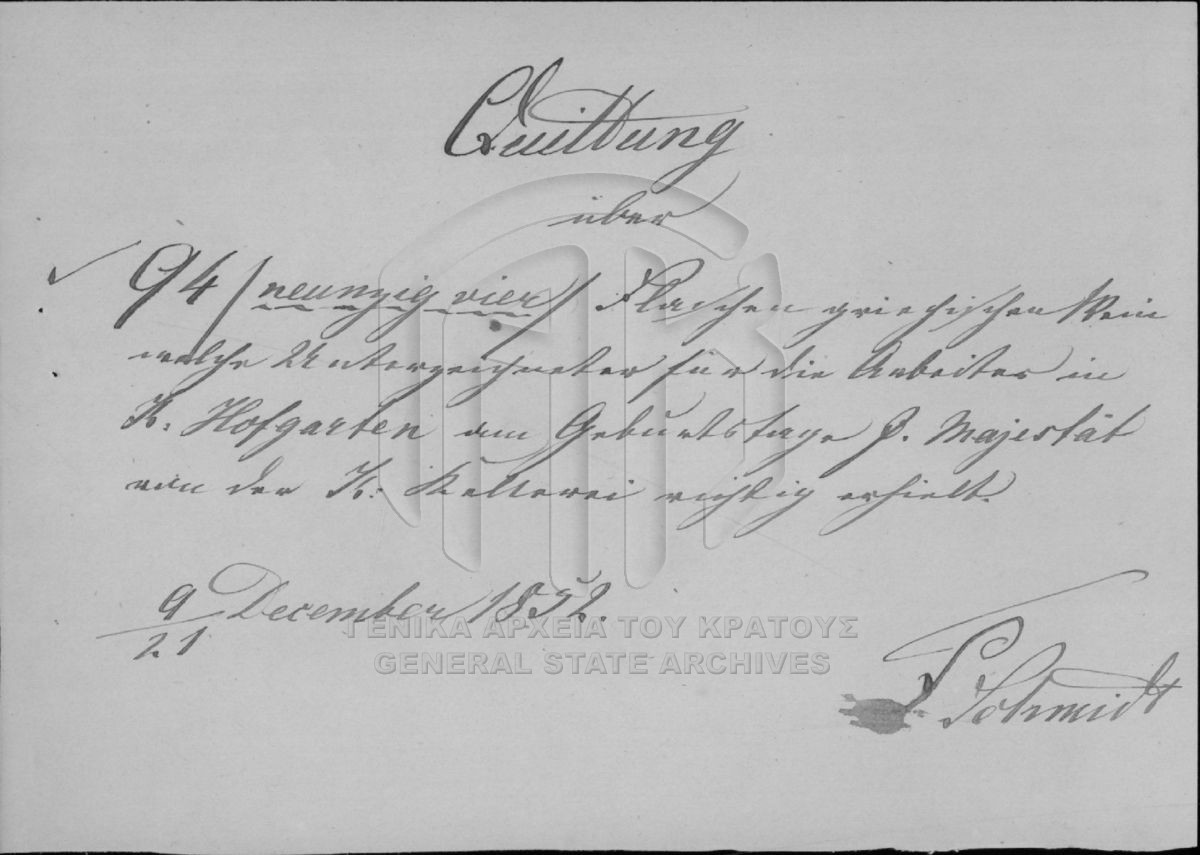 Quittung
über
94 / neunzig vier / Flaschen griechischen Wein
welche Unterzeichneter für die Arbeiter im
K. Hofgarten am Geburtstage S. Majestät
von der K. Kellerei richtig erhielt.
9/21 December 1852.
Schmidt
ΓΕΝΙΚΑ ΑΡΧΕΙΑ ΤΟΥ ΚΡΑΤΟΥΣ
GENERAL STATE ARCHIVES